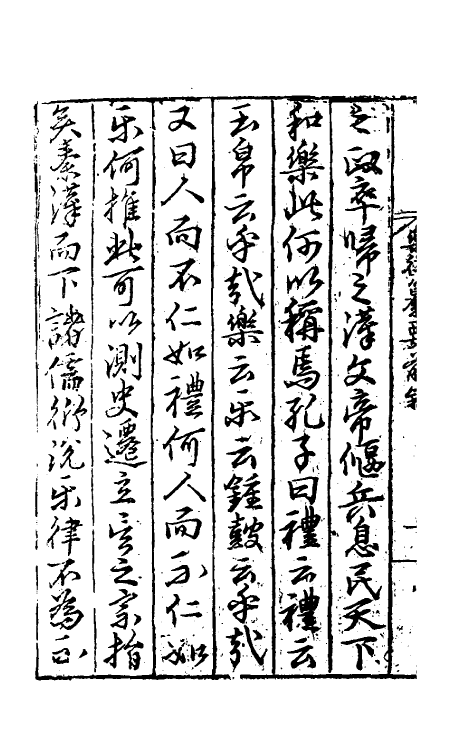 之政卒歸之漢文帝偃兵息民天下
和樂此何以稱焉孔子曰禮云禮云
玉帛云乎哉樂云乐云鍾鼓云乎哉
又曰人而不仁如禮何人而不仁如
乐何推此可以測史遷立言之宗指
矣秦漢而下諸儒衍説乐律不為
樂律纂要前叙